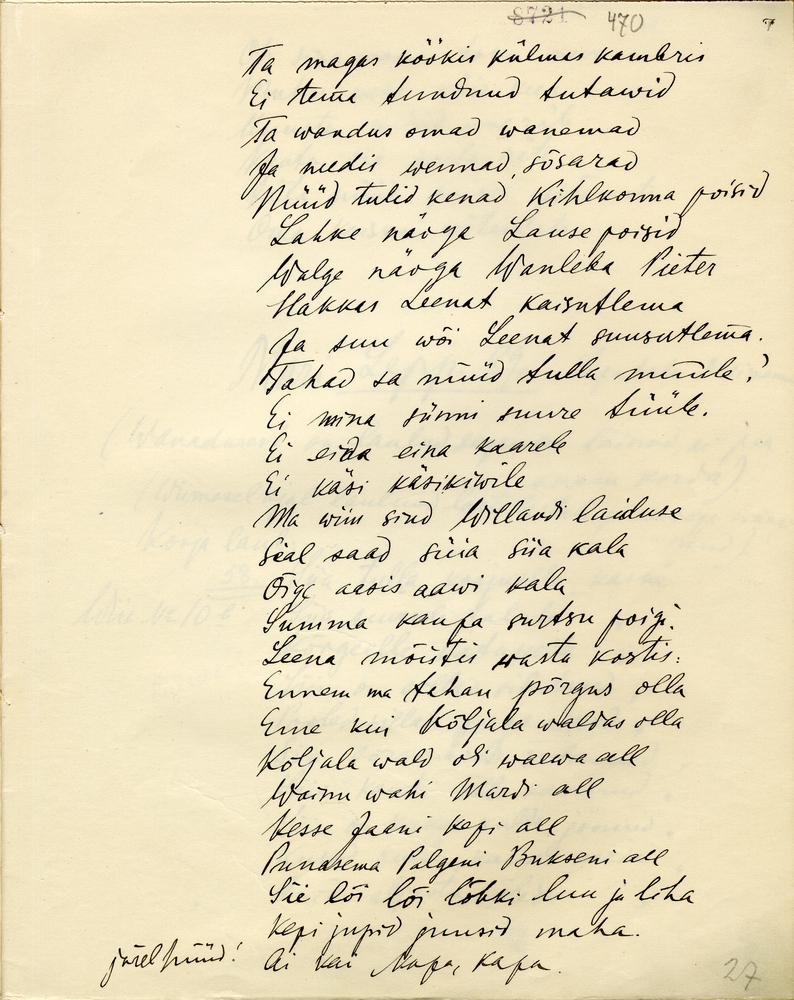 8721 470
Ta magas köökis külmas kambris
Ei tema tundnud tutawid
Ta wandus omad wanemad
Ja needis wennad, sõsarad
Nüüd tulid kenad Kihlkonna poisid
Lahke näoga Lause poisid
Walge näoga Wanleba Pieter
Hakkas Leenat kaisutlema
Ja suu wõi Leenat suusutlema.
Tahad sa nüüd tulla minule?
Ei mina sünni suure tüüle.
Ei eida eina kaarele
Ei käsi käsikiwile
Ma wiin sind Willandi laiduse
Seal saad süia siia kala
Õige aasis aawi kala
Summa kaupa surtsu poigi.
Leena mõistis wasta kostis:
Ennem ma tahan põrgus olla
Enne kui Kõljala waldas olla
Kõljala wald oli waewa all
Wainu wahi Mardi all
Kesse Jaani kepi all
Punasema Palgeni Bukseni all
Sie lõi lõi lõhki luu ja liha
Kepi jupid juusid maha.
järelhüüd! Ai kai kapa, kapa.
27